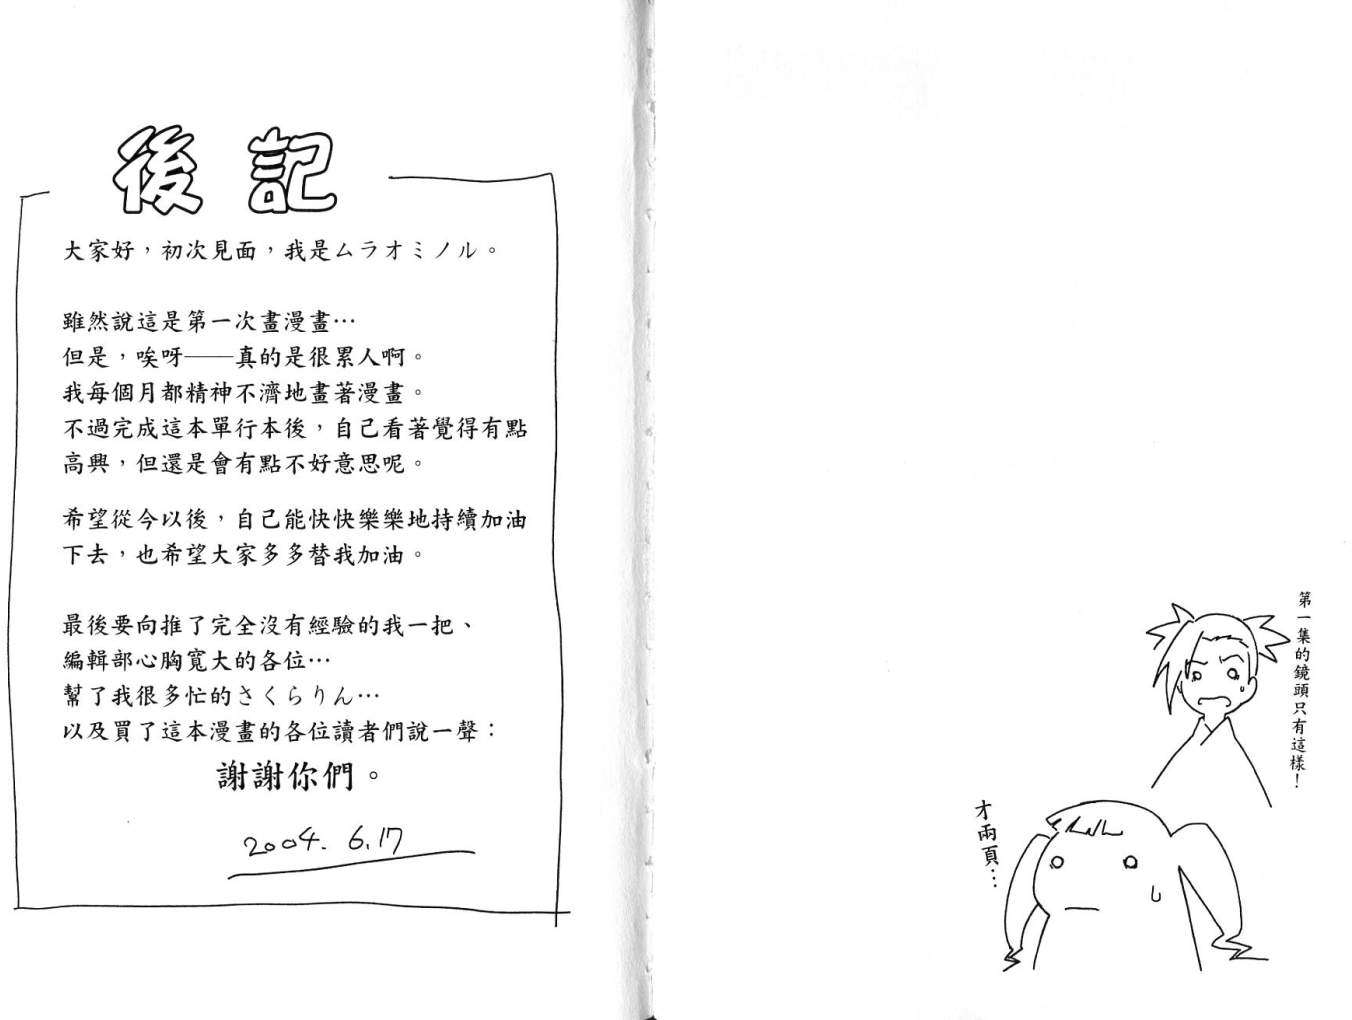 後記
大家好，初次見面，我是ムラオミノル。
雖然說這是第一次畫漫畫⋯
但是，唉呀──真的是很累人啊。
我每個月都精神不濟地畫著漫畫。
不過完成這本單行本後，自己看著覺得有點
高興，但還是會有點不好意思呢。
希望從今以後，自己能快快樂樂地持續加油
下去，也希望大家多多替我加油。
最後要向推了完全沒有經驗的我一把、
編輯部心胸寬大的各位⋯
幫了我很多忙的さくらりん⋯
以及買了這本漫畫的各位讀者們說一聲：
謝謝你們。
2004. 6.17
第一集的鏡頭只有這樣！
才兩頁⋯